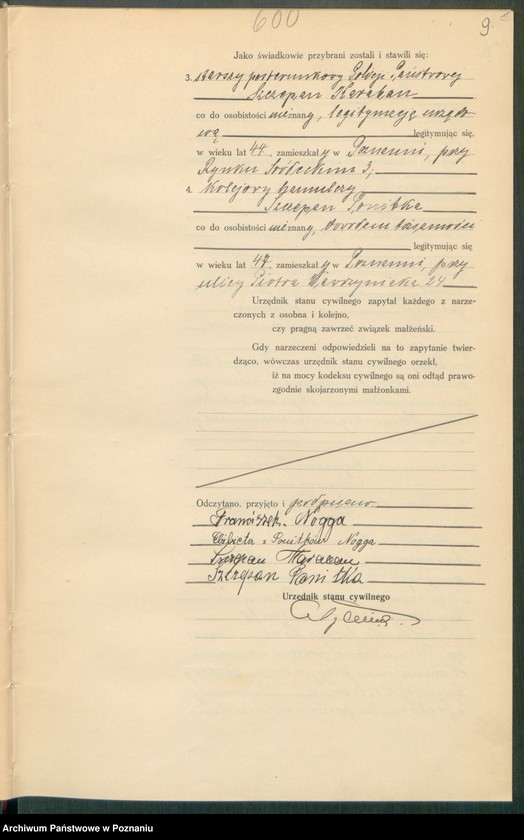 600
9
Jako świadkowie przybrani zostali i stawili się:
3. starszy posterunkowy Policji Państwowej
Szczepan Karaban
co do osobistości nieznany, legitymacją urzędo-
wą legitymując się,
w wieku lat 44, zamieszkały w Poznaniu, przy
Rynku Śródeckim 3;
4. kolejowy
Szczepan Ponitka
co do osobistości nieznany, dowodem tożsamości
legitymując się
w wieku lat 47, zamieszkały w Poznaniu, przy
ulicy Piotra Wawrzyniaka 24
Urzędnik stanu cywilnego zapytał każdego z narze-
czonych z osobna i kolejno,
czy pragną zawrzeć związek małżeński.
Gdy narzeczeni odpowiedzieli na to zapytanie twier-
dząco, wówczas urzędnik stanu cywilnego orzekł,
iż na mocy kodeksu cywilnego są oni odtąd prawo-
zgodnie skojarzonymi małżonkami.
Odczytano, przyjęto i podpisano
Franciszek Nogga
Elżbieta z Ponitków Nogga
Szczepan Karaban
Szczepan Ponitka
Urzędnik stanu cywilnego
Archiwum Państwowe w Poznaniu